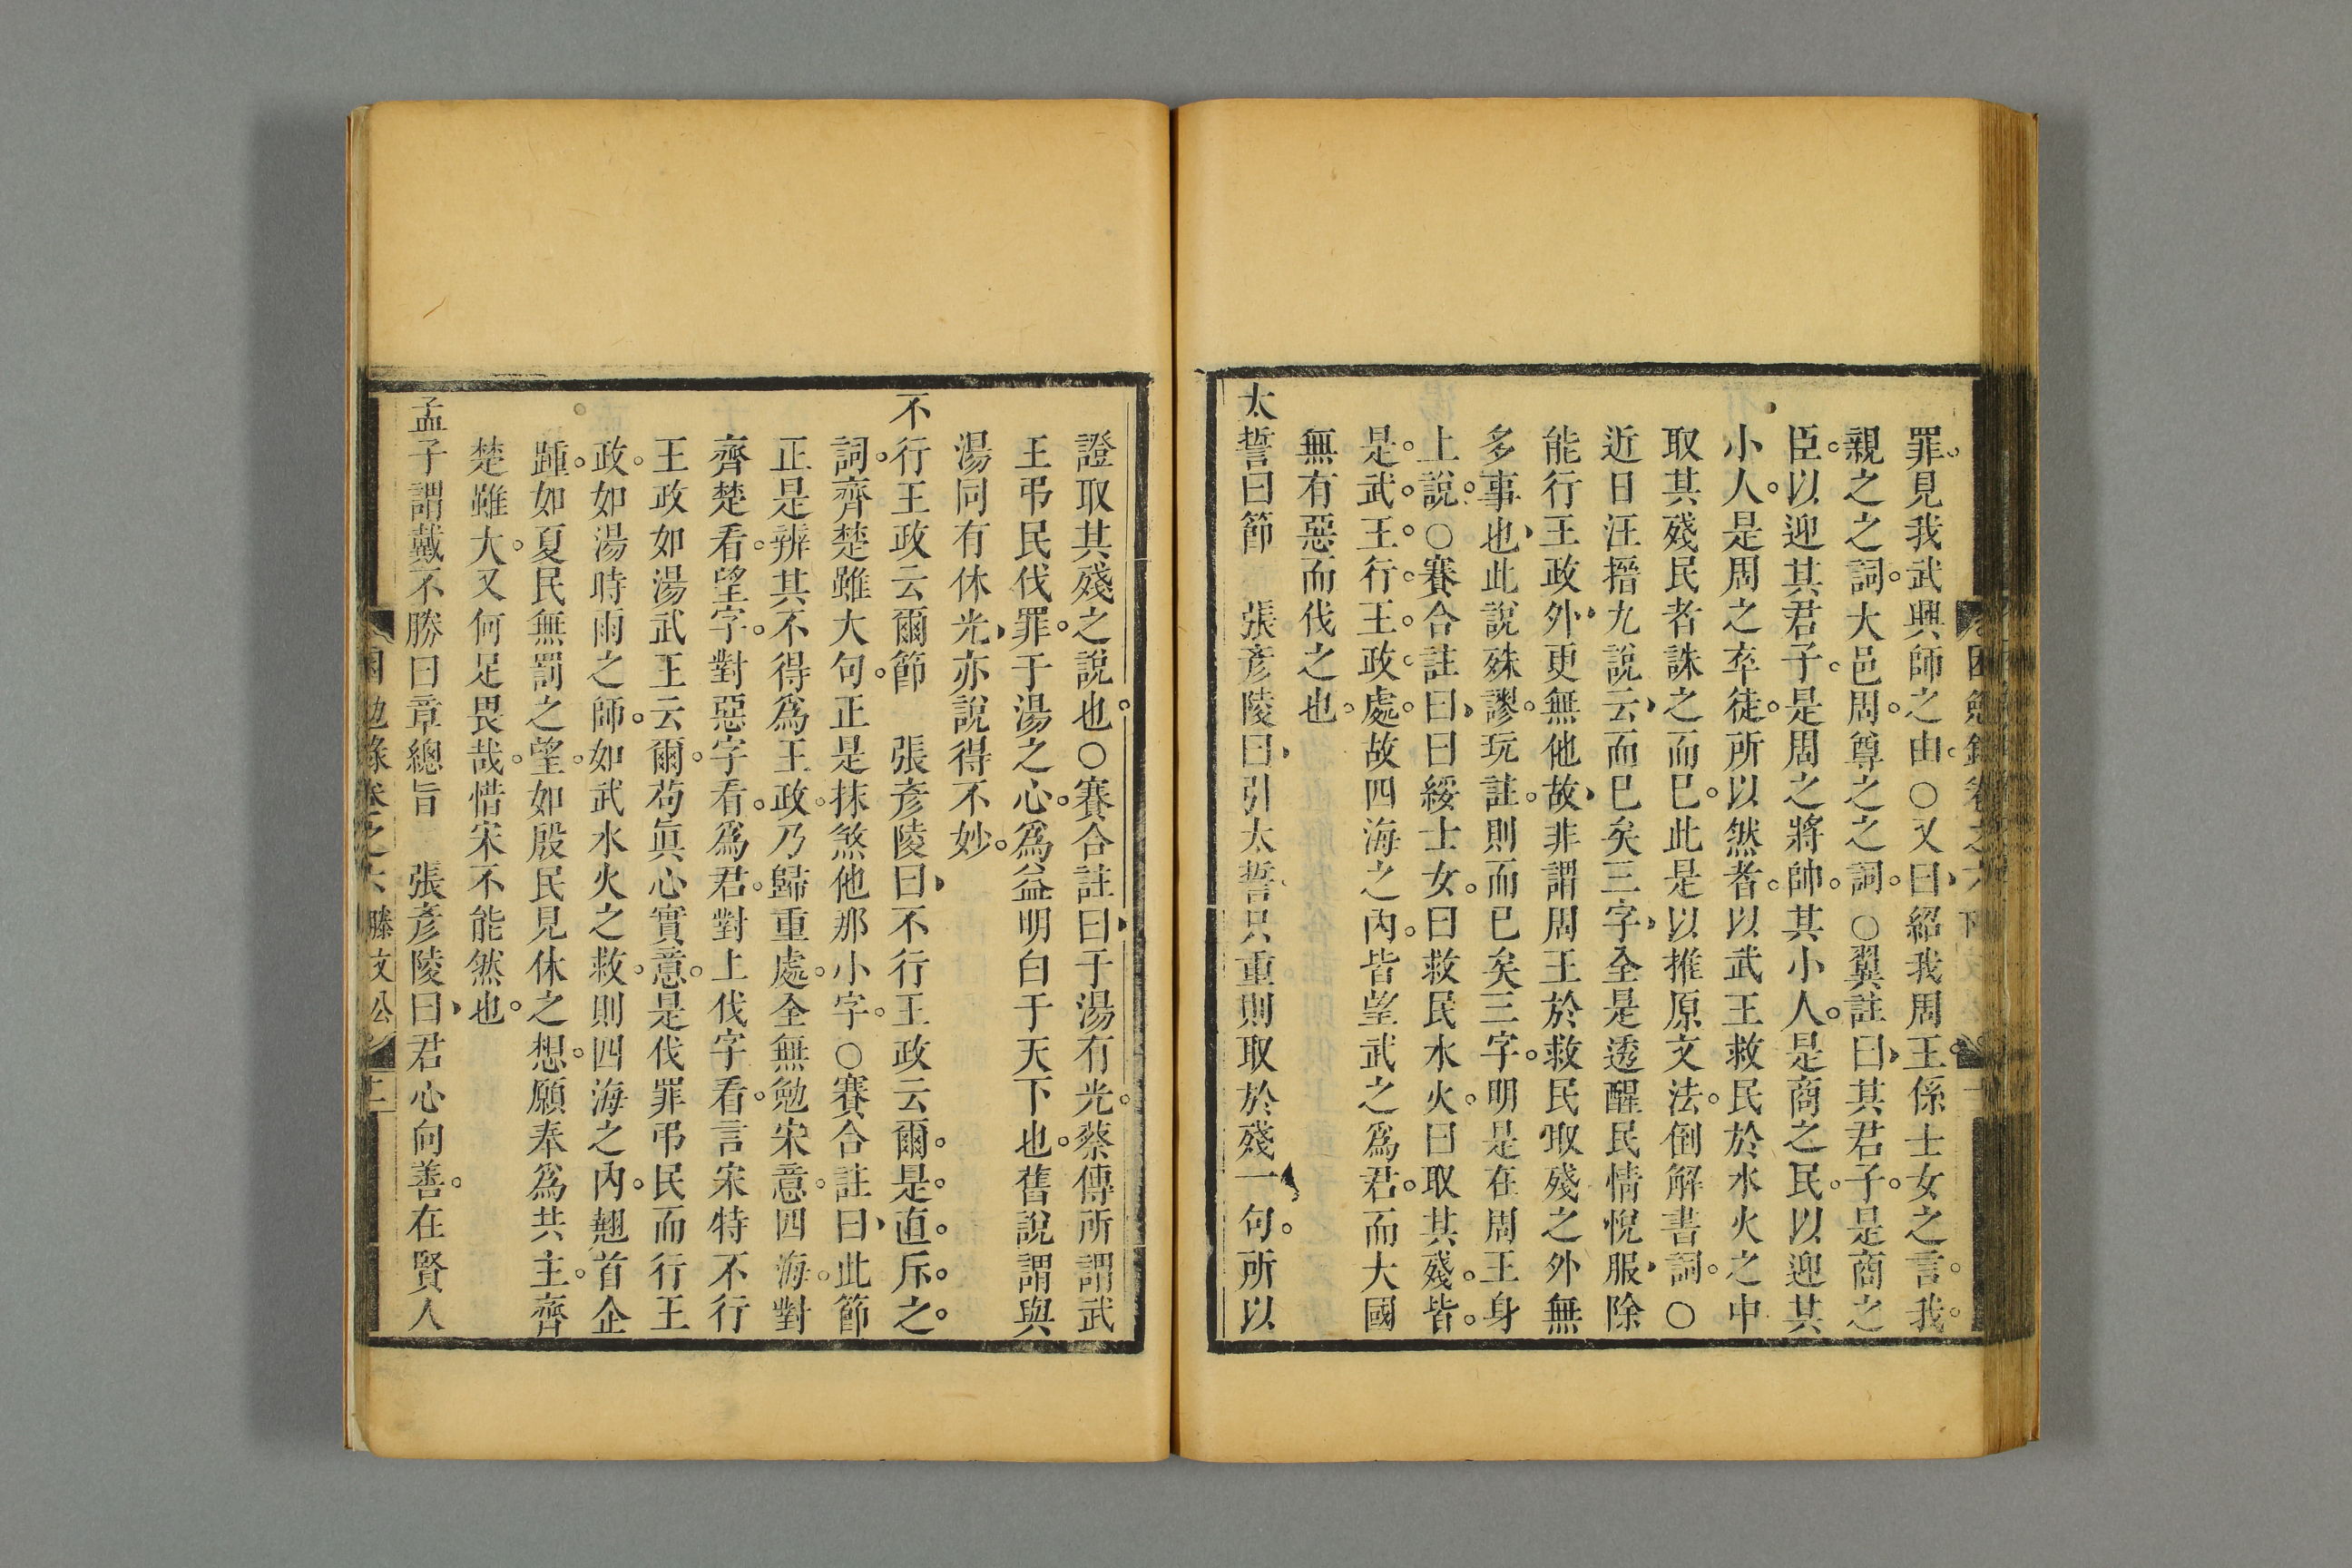 罪見我武興師之由○又曰紹我周王係士女之言我
親之之詞大邑周尊之之詞○翼註曰其君子是商之
臣以迎其君子是周之將帥其小人是商之民以迎其
小人是周之卒徒所以然者以武王救民於水火之中
取其殘民者誅之而已此是以推原文法倒解書詞○
近日汪搢九說云而已矣三字全是透醒民情悅服除
能行王政外更無他故非謂周王於救民取殘之外無
多事也此說殊謬玩註則而已矣三字明是在周王身
上說○賽合註曰曰綏士女曰救民水火曰取其殘皆
是武王行王政處故四海之內皆望武之爲君而大國
無有惡而伐之也
太誓曰節 張彥陵曰引太誓只重則取於殘一句所以
證取其殘之說也○賽合註曰于湯有光蔡傳所謂武
王弔民伐罪于湯之心爲益明白于天下也舊說謂與
湯同有休光亦說得不妙
不行王政云爾節 張彥陵曰不行王政云爾是直斥之
詞齊楚雖大句正是抹煞他那小字○賽合註曰此節
正是辨其不得爲王政乃歸重處全無勉宋意四海對
齊楚看望字對惡字看爲君對上伐字看言宋特不行
王政如湯武王云爾苟眞心實意是伐罪弔民而行王
政如湯時雨之師如武水火之救則四海之內翹首企
踵如夏民無罰之望如殷民見休之想願奉爲共主齊
楚雖大又何足畏哉惜宋不能然也
孟子謂戴不勝曰章總旨 張彥陵曰君心向善在賢人
困勉錄卷之六 滕文公